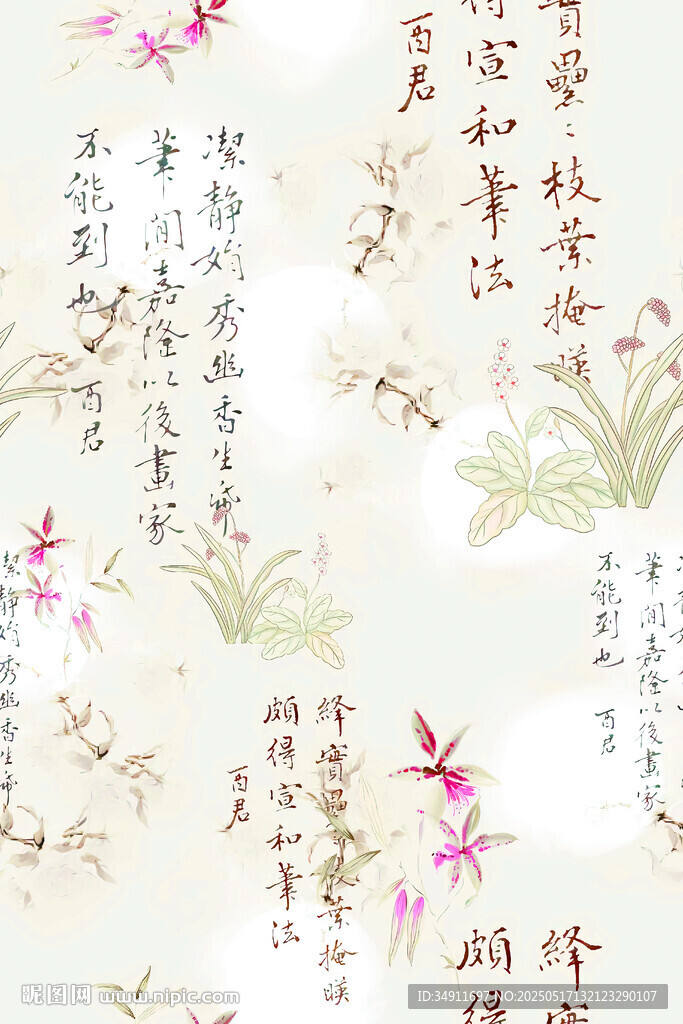 實纍〻枝葉掩暎
得宣和筆法
酉君
潔靜娟秀幽香生帋
筆間嘉隆以後畫家
不能到也
酉君
筆間嘉隆以後畫家
不能到也
酉君
潔靜娟秀幽香生帋
絳實纍〻枝葉掩暎
頗得宣和筆法
酉君
絳實
頗得
昵图网 www.nipic.com
ID:34911697 NO:20250517132123290107